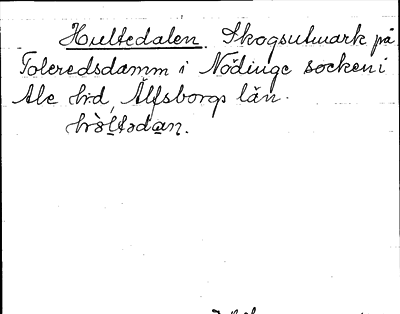 Hultedalen. Skogsutmark på
Toleredsdamm i Nödinge socken i
Ale hd, Älfsborgs län.
hòltədan.